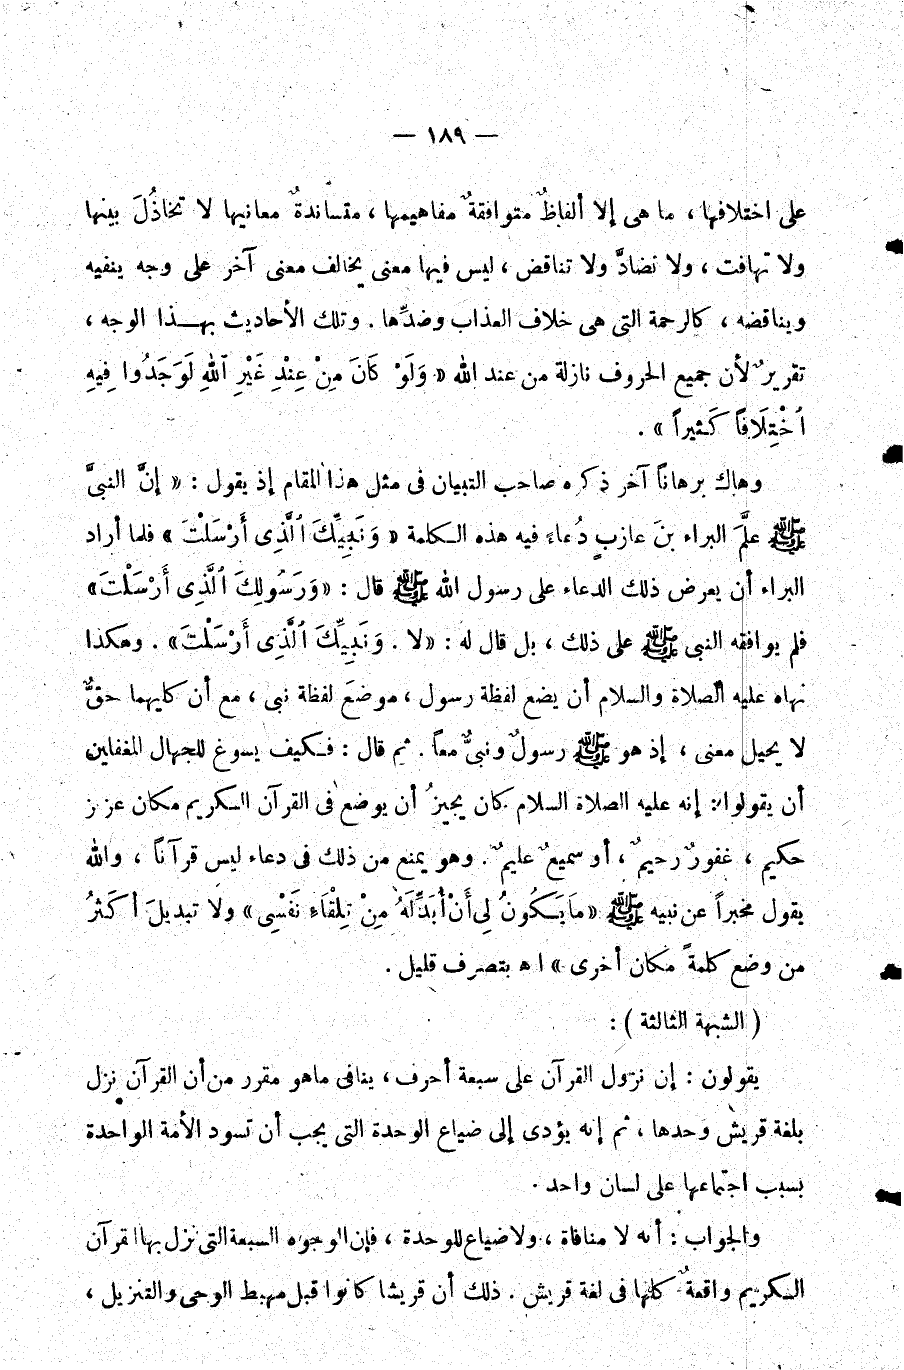 — ١٨٩ —
على اختلافها ، ما هى إلا ألفاظٌ متوافقةٌ مفاهيمها ، متساندةٌ معانيها لا تخاذُلَ بينها
ولا تهافت ، ولا تضادَّ ولا تناقض ، ليس فيها معنى يخالف معنى آخر على وجه ينفيه
ويناقضه ، كالرحمة التى هى خلاف العذاب وضدِّها . وتلك الأحاديث بهـذا الوجه ،
تقريرٌ لأن جميع الحروف نازلة من عند الله « وَلَوْ كَانَ مِنْ عِنْدِ غَيْرِ ٱللهِ لَوَجَدُوا فِيهِ
ٱخْتِلَافاً كَثِيراً » .
وهاك برهاناً آخر ذكره صاحب التبيان فى مثل هذا المقام إذ يقول : « إنَّ النبىَّ
ﷺ علَّمَ البراء بنَ عازبٍ دُعاءً فيه هذه الكلمة « وَنَبِيِّكَ ٱلَّذِى أَرْسَلْتَ » فلما أراد
البراء أن يعرض ذلك الدعاء على رسول الله ﷺ قال : « وَرَسُولِكَ ٱلَّذِى أَرْسَلْتَ »
فلم يوافقه النبى ﷺ على ذلك ، بل قال له : « لا . وَنَبِيِّكَ ٱلَّذِى أَرْسَلْتَ » . وهكذا
نهاه عليه الصلاة والسلام أن يضع لفظة رسول ، موضعَ لفظة نبى ، مع أن كليهما حقٌّ
لا يحيل معنى ، إذ هو ﷺ رسولٌ ونبىٌّ معاً . ثم قال : فكيف يسوغ للجهال المغفلين
أن يقولوا : إنه عليه الصلاة السلام كان يجيزُ أن يوضع فى القرآن الكريم مكان عزيز
حكيم ، غفورٌ رحيمٌ ، أو سميعٌ عليمٌ . وهو يمنع من ذلك فى دعاء ليس قرآناً ، والله
يقول مخبراً عن نبيه ﷺ « مَا يَكُونُ لِى أَنْ أُبَدِّلَهُ مِنْ تِلْقَاءِ نَفْسِى » ولا تبديلَ أكثرُ
من وضع كلمةً مكان أخرى » ا ه بتصرف قليل .
( الشبهة الثالثة ) :
يقولون : إن نزول القرآن على سبعة أحرف ، ينافى ماهو مقرر من أن القرآن نزل
بلغة قريش وحدها ، ثم إنه يؤدى إلى ضياع الوحدة التى يجب أن تسود الأمة الواحدة
بسبب اجتماعها على لسان واحد .
والجواب : أنه لا منافاة ، ولا ضياع للوحدة ، فإن الوجوه السبعة التى نزل بها القرآن
الكريم واقعةٌ كلها فى لغة قريش . ذلك أن قريشا كانوا قبل مهبط الوحى والتنزيل ،